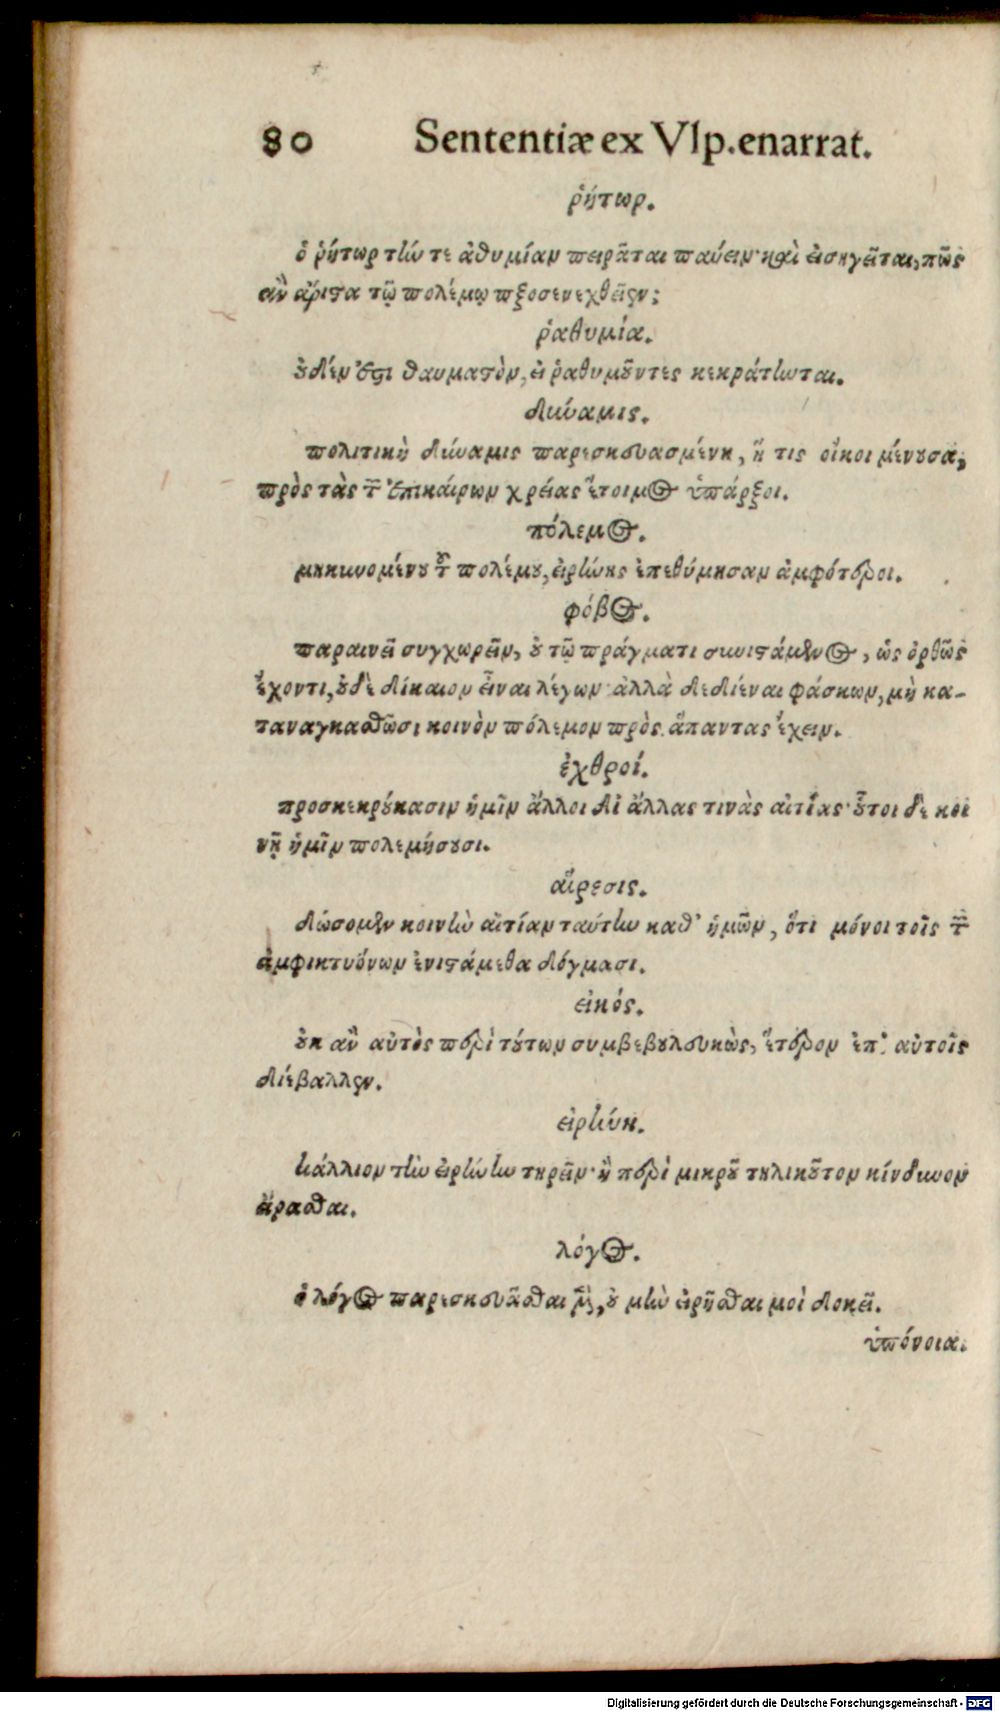 80 Sententiæ ex Vlp. enarrat.
ῥήτωρ.
ὁ ῥήτωρ τήν τε ἀθυμίαν πειρᾶται παύειν· καὶ εἰσηγεῖται, πῶς
ἂν ἄριστα τῷ πολέμῳ προσενεχθεῖεν;
ῥαθυμία.
οὐδέν ἐστι θαυμαστὸν, εἰ ῥαθυμοῦντες κεκράτηνται.
δύναμις.
πολιτικὴ δύναμις παρεσκευασμένη, ἥ τις οἴκοι μένουσα,
πρὸς τὰς τῶν ἐπικαίρων χρείας ἕτοιμος ὑπάρξοι.
πόλεμος.
μηκυνομένου τοῦ πολέμου, εἰρήνης ἐπεθύμησαν ἀμφότεροι.
φόβος.
παραινεῖ συγχωρεῖν, οὐ τῷ πράγματι συνιστάμενος, ὡς ὀρθῶς
ἔχοντι, οὐδὲ δίκαιον εἶναι λέγων· ἀλλὰ δεδιέναι φάσκων, μὴ κα-
ταναγκασθῶσι κοινὸν πόλεμον πρὸς ἅπαντας ἔχειν.
ἐχθροί.
προσκεκρούκασιν ἡμῖν ἄλλοι δι' ἄλλας τινὰς αἰτίας· οὗτοι δὲ κοι
νῇ ἡμῖν πολεμήσουσι.
αἵρεσις.
δώσομεν κοινὴν αἰτίαν ταύτην καθ' ἡμῶν, ὅτι μόνοι τοῖς τῶν
ἀμφικτυόνων ἐνιστάμεθα δόγμασι.
εἰκός.
οὐκ ἂν αὐτὸς περὶ τούτων συμβεβουλευκὼς, ἕτερον ἐπ' αὐτοῖς
διέβαλλεν.
εἰρήνη.
κάλλιον τὴν εἰρήνην τηρεῖν· ἢ περὶ μικροῦ τηλικοῦτον κίνδυνον
ἄρασθαι.
λόγος.
ὁ λόγος παρεσκευᾶσθαι μὲν, οὐ μὴν εἰρῆσθαι μοὶ δοκεῖ.
ὑπόνοια.
Digitalisierung gefördert durch die Deutsche Forschungsgemeinschaft - DFG